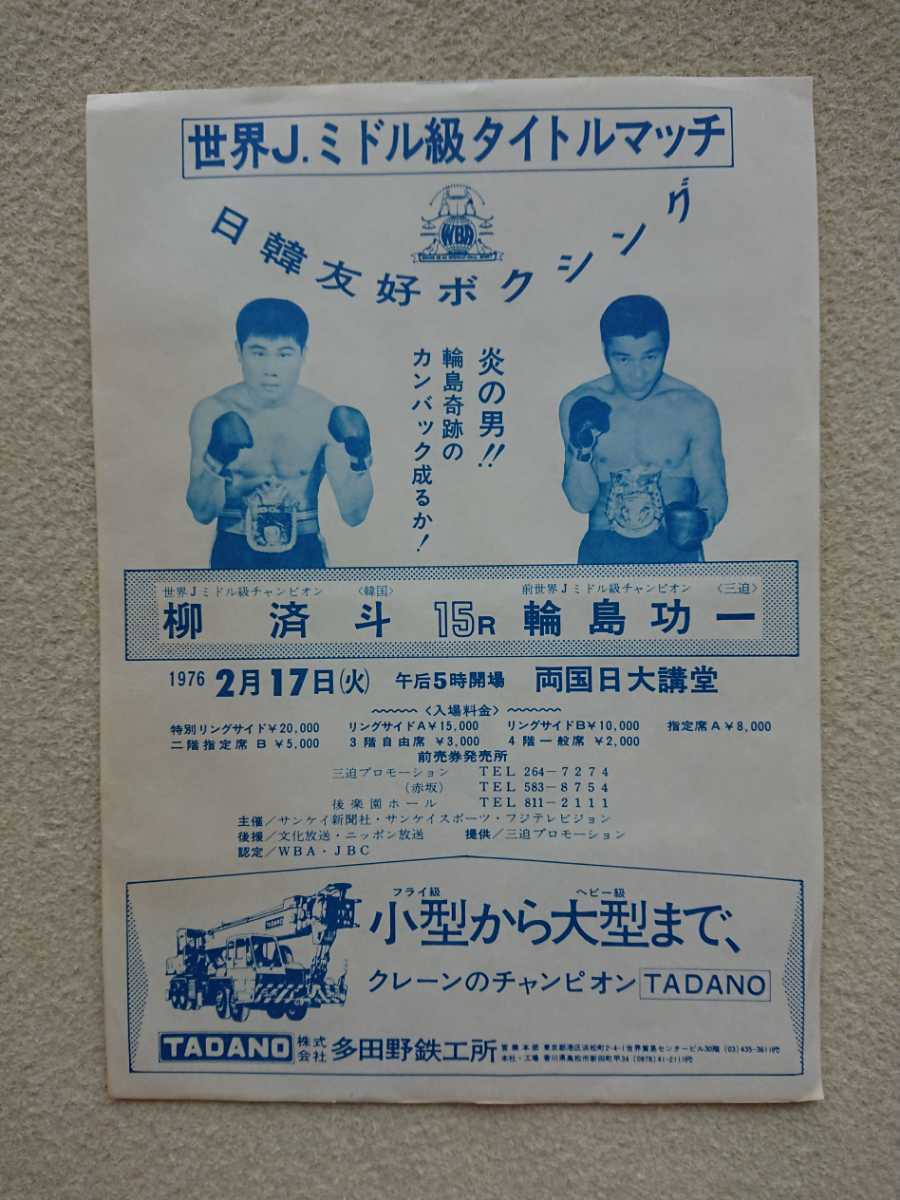 世界J.ミドル級タイトルマッチ
WBA
日韓友好ボクシング
炎の男!!
輪島奇跡の
カンバック成るか!
世界Jミドル級チャンピオン 〈韓国〉
柳済斗
15R
前世界Jミドル級チャンピオン 〈三迫〉
輪島功一
1976 2月17日(火) 午后5時開場 両国日大講堂
〈入場料金〉
特別リングサイド¥20,000 リングサイドA¥15,000 リングサイドB¥10,000 指定席A¥8,000
二階指定席B ¥5,000 3階自由席 ¥3,000 4階一般席 ¥2,000
前売券発売所
三迫プロモーション TEL 264-7274
(赤坂) TEL 583-8754
後楽園ホール TEL 811-2111
主催/サンケイ新聞社・サンケイスポーツ・フジテレビジョン
後援/文化放送・ニッポン放送 提供/三迫プロモーション
認定/WBA・JBC
TADANO
フライ級 ヘビー級
小型から大型まで、
クレーンのチャンピオン TADANO
TADANO 株式会社 多田野鉄工所
営業本部 東京都港区浜松町2-4-1(世界貿易センタービル30階) (03)435-3611代
本社・工場 香川県高松市新田町甲34 (0878)41-2111代